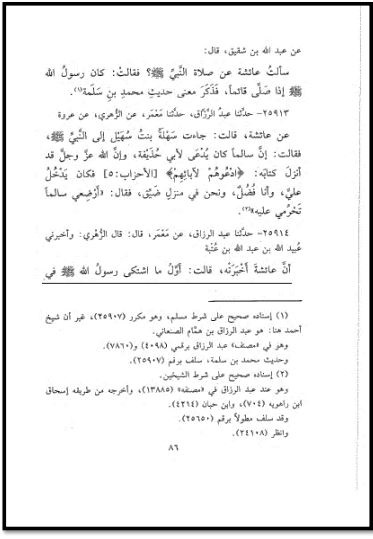 عن عبد الله بن شقيق، قال:
سألتُ عائشة عن صلاة النَّبيِّ ﷺ؟ فقالتْ: كان رسولُ الله
ﷺ إذا صَلَّى قائماً، فَذَكَرَ معنى حديثِ محمدِ بنِ سَلَمة(١).
٢٥٩١٣- حدَّثنا عبدُ الرَّزَّاق، حدَّثنا مَعْمَر، عن الزُّهري، عن عروة
عن عائشة، قالت: جاءت سَهْلَةُ بنتُ سُهَيْل إلى النَّبيِّ ﷺ،
فقالت: إنَّ سالماً كان يُدْعَى لأبي حُذَيْفة، وإنَّ الله عزَّ وجلَّ قد
أنزلَ كتابَه: ﴿ادْعُوهُمْ لآبائِهِمْ﴾ [الأحزاب:٥] فكان يَدْخُلُ
عليَّ، وأنا فُضُلٌ، ونحن في منزلٍ ضَيِّق، فقال: «أَرْضِعي سالماً
تَحْرُمي عليه»(٢).
٢٥٩١٤- حدَّثنا عبد الرزاق، عن مَعْمَر، قال: قال الزُّهْري: وأخبرني
عُبيد الله بن عبد الله بن عُتْبة
أنَّ عائشةَ أَخْبَرَتْه، قالت: أوَّلُ ما اشتكى رسولُ الله ﷺ في
(١) إسناده صحيح على شرط مسلم، وهو مكرر (٢٥٩٠٧)، غير أن شيخ
أحمد هنا: هو عبد الرزاق بن همَّام الصنعاني.
وهو في «مصنف» عبد الرزاق برقمي (٤٠٩٨) و(٧٨٦٠).
وحديث محمد بن سلمة، سلف برقم (٢٥٩٠٧).
(٢) إسناده صحيح على شرط الشيخين.
وهو عند عبد الرزاق في «مصنفه» (١٣٨٨٥)، وأخرجه من طريقه إسحاق
ابن راهويه (٧٠٤)، وابن حبان (٤٢١٤).
وقد سلف مطولاً برقم (٢٥٦٥٠).
وانظر (٢٤١٠٨).
٨٦